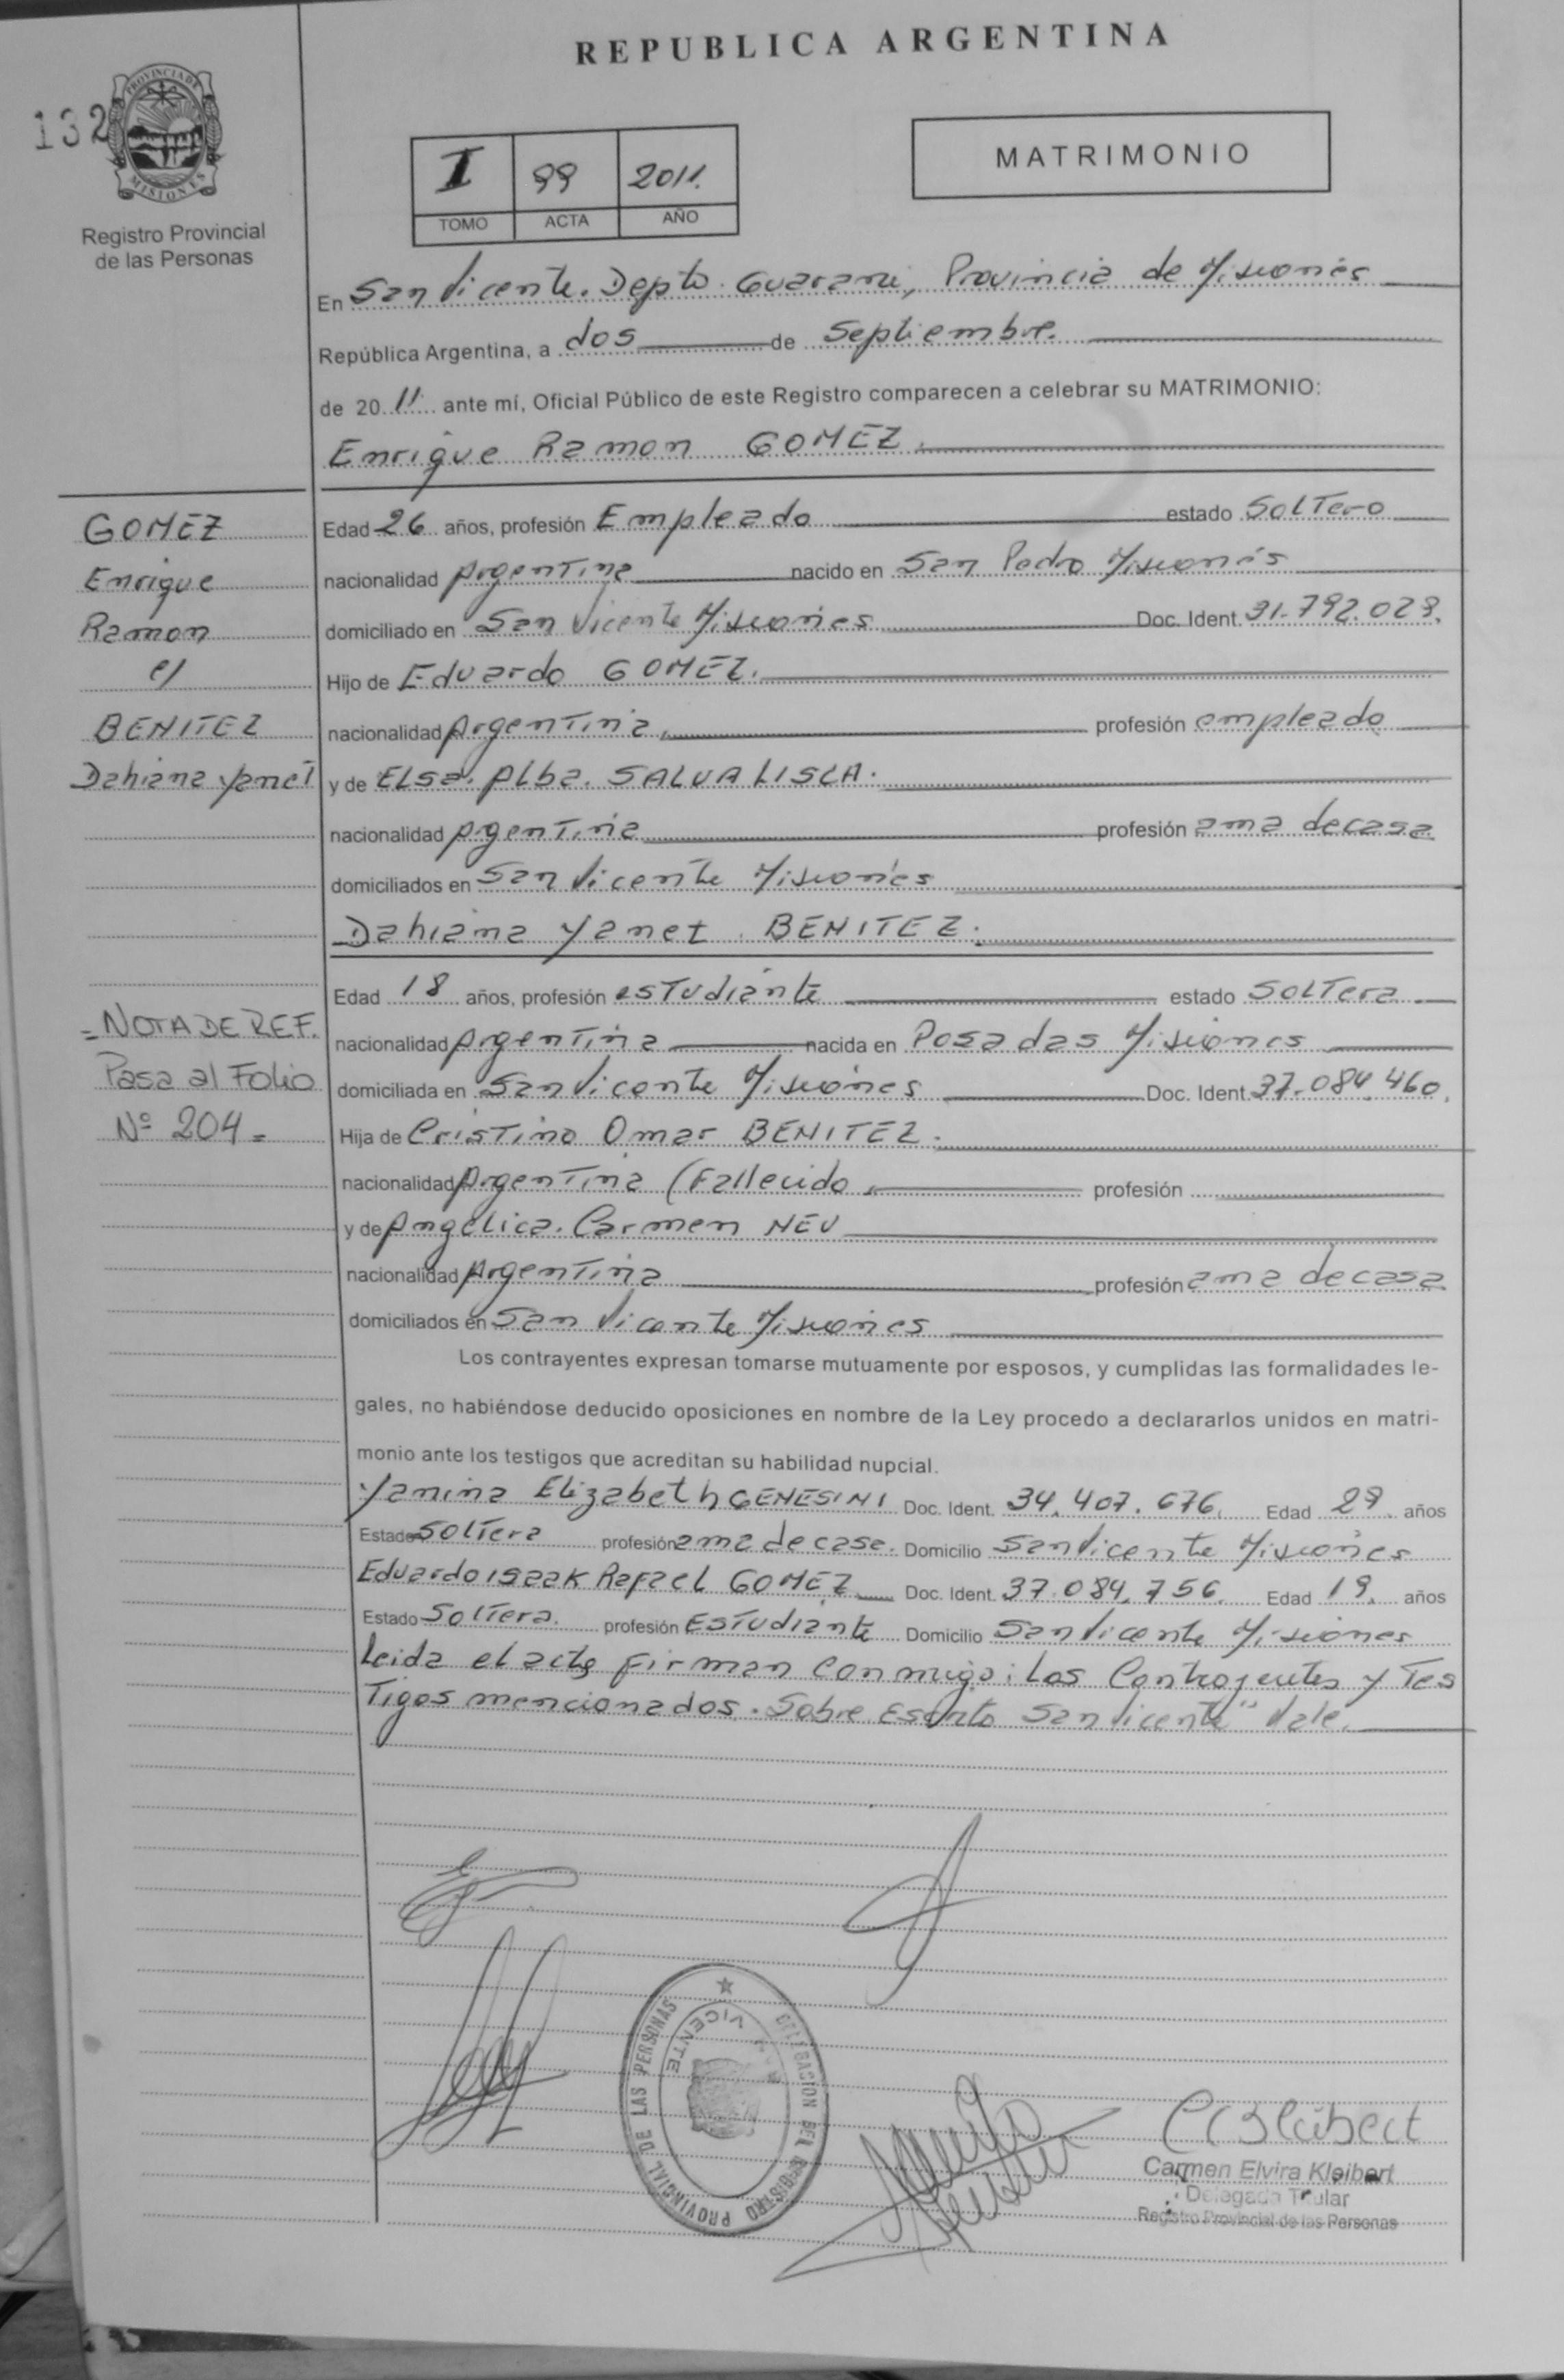 REPUBLICA ARGENTINA
132
PROVINCIA DE
MISIONES
Registro Provincial
de las Personas
I 99 2011.
TOMO ACTA AÑO
MATRIMONIO
En San Vicente. Depto. Guarani, Provincia de Misiones
República Argentina, a dos de Septiembre.
de 20 11. ante mí, Oficial Público de este Registro comparecen a celebrar su MATRIMONIO:
Enrique Ramon GOMEZ.
GOMEZ
Enrique
Ramon
c/
BENITEZ
Dahiana Yanet
Edad 26 años, profesión Empleado estado SolTero
nacionalidad ArgenTina nacido en San Pedro Misiones
domiciliado en San Vicente Misiones Doc. Ident. 31.792.029.
Hijo de Eduardo GOMEZ.
nacionalidad ArgenTina, profesión empleado
y de Elsa. Alba. SALVA LISCA.
nacionalidad ArgenTina profesión ama de casa
domiciliados en San Vicente Misiones
Dahiana Yanet BENITEZ.
Edad 18 años, profesión esTudiante estado SolTera
nacionalidad ArgenTina nacida en Posadas Misiones
domiciliada en San Vicente Misiones Doc. Ident. 37.084.460.
Hija de CrisTino Omar BENITEZ.
nacionalidad ArgenTina (Fallecido, profesión
y de Angelica. Carmen NEU
nacionalidad ArgenTina profesión ama de casa
domiciliados en San Vicente Misiones
= NOTA DE REF.
Pasa al Folio
Nº 204 =
Los contrayentes expresan tomarse mutuamente por esposos, y cumplidas las formalidades le-
gales, no habiéndose deducido oposiciones en nombre de la Ley procedo a declararlos unidos en matri-
monio ante los testigos que acreditan su habilidad nupcial.
Yanina Elizabeth GENESINI Doc. Ident. 34.407.676. Edad 29. años
Estado SolTera profesión ama de casa. Domicilio San Vicente Misiones
Eduardo Isaak Rafael GOMEZ Doc. Ident. 37.084.756. Edad 19. años
Estado SolTera. profesión EsTudiante Domicilio San Vicente Misiones
Leida el acta firman conmigo: los Contrayentes y Tes
Tigos mencionados. Sobre Escrito San Vicente" Vale.
DELEGACION DEL REGISTRO PROVINCIAL DE LAS PERSONAS
VICENTE
Carmen Elvira Kleibert
Delegada Titular
Registro Provincial de las Personas